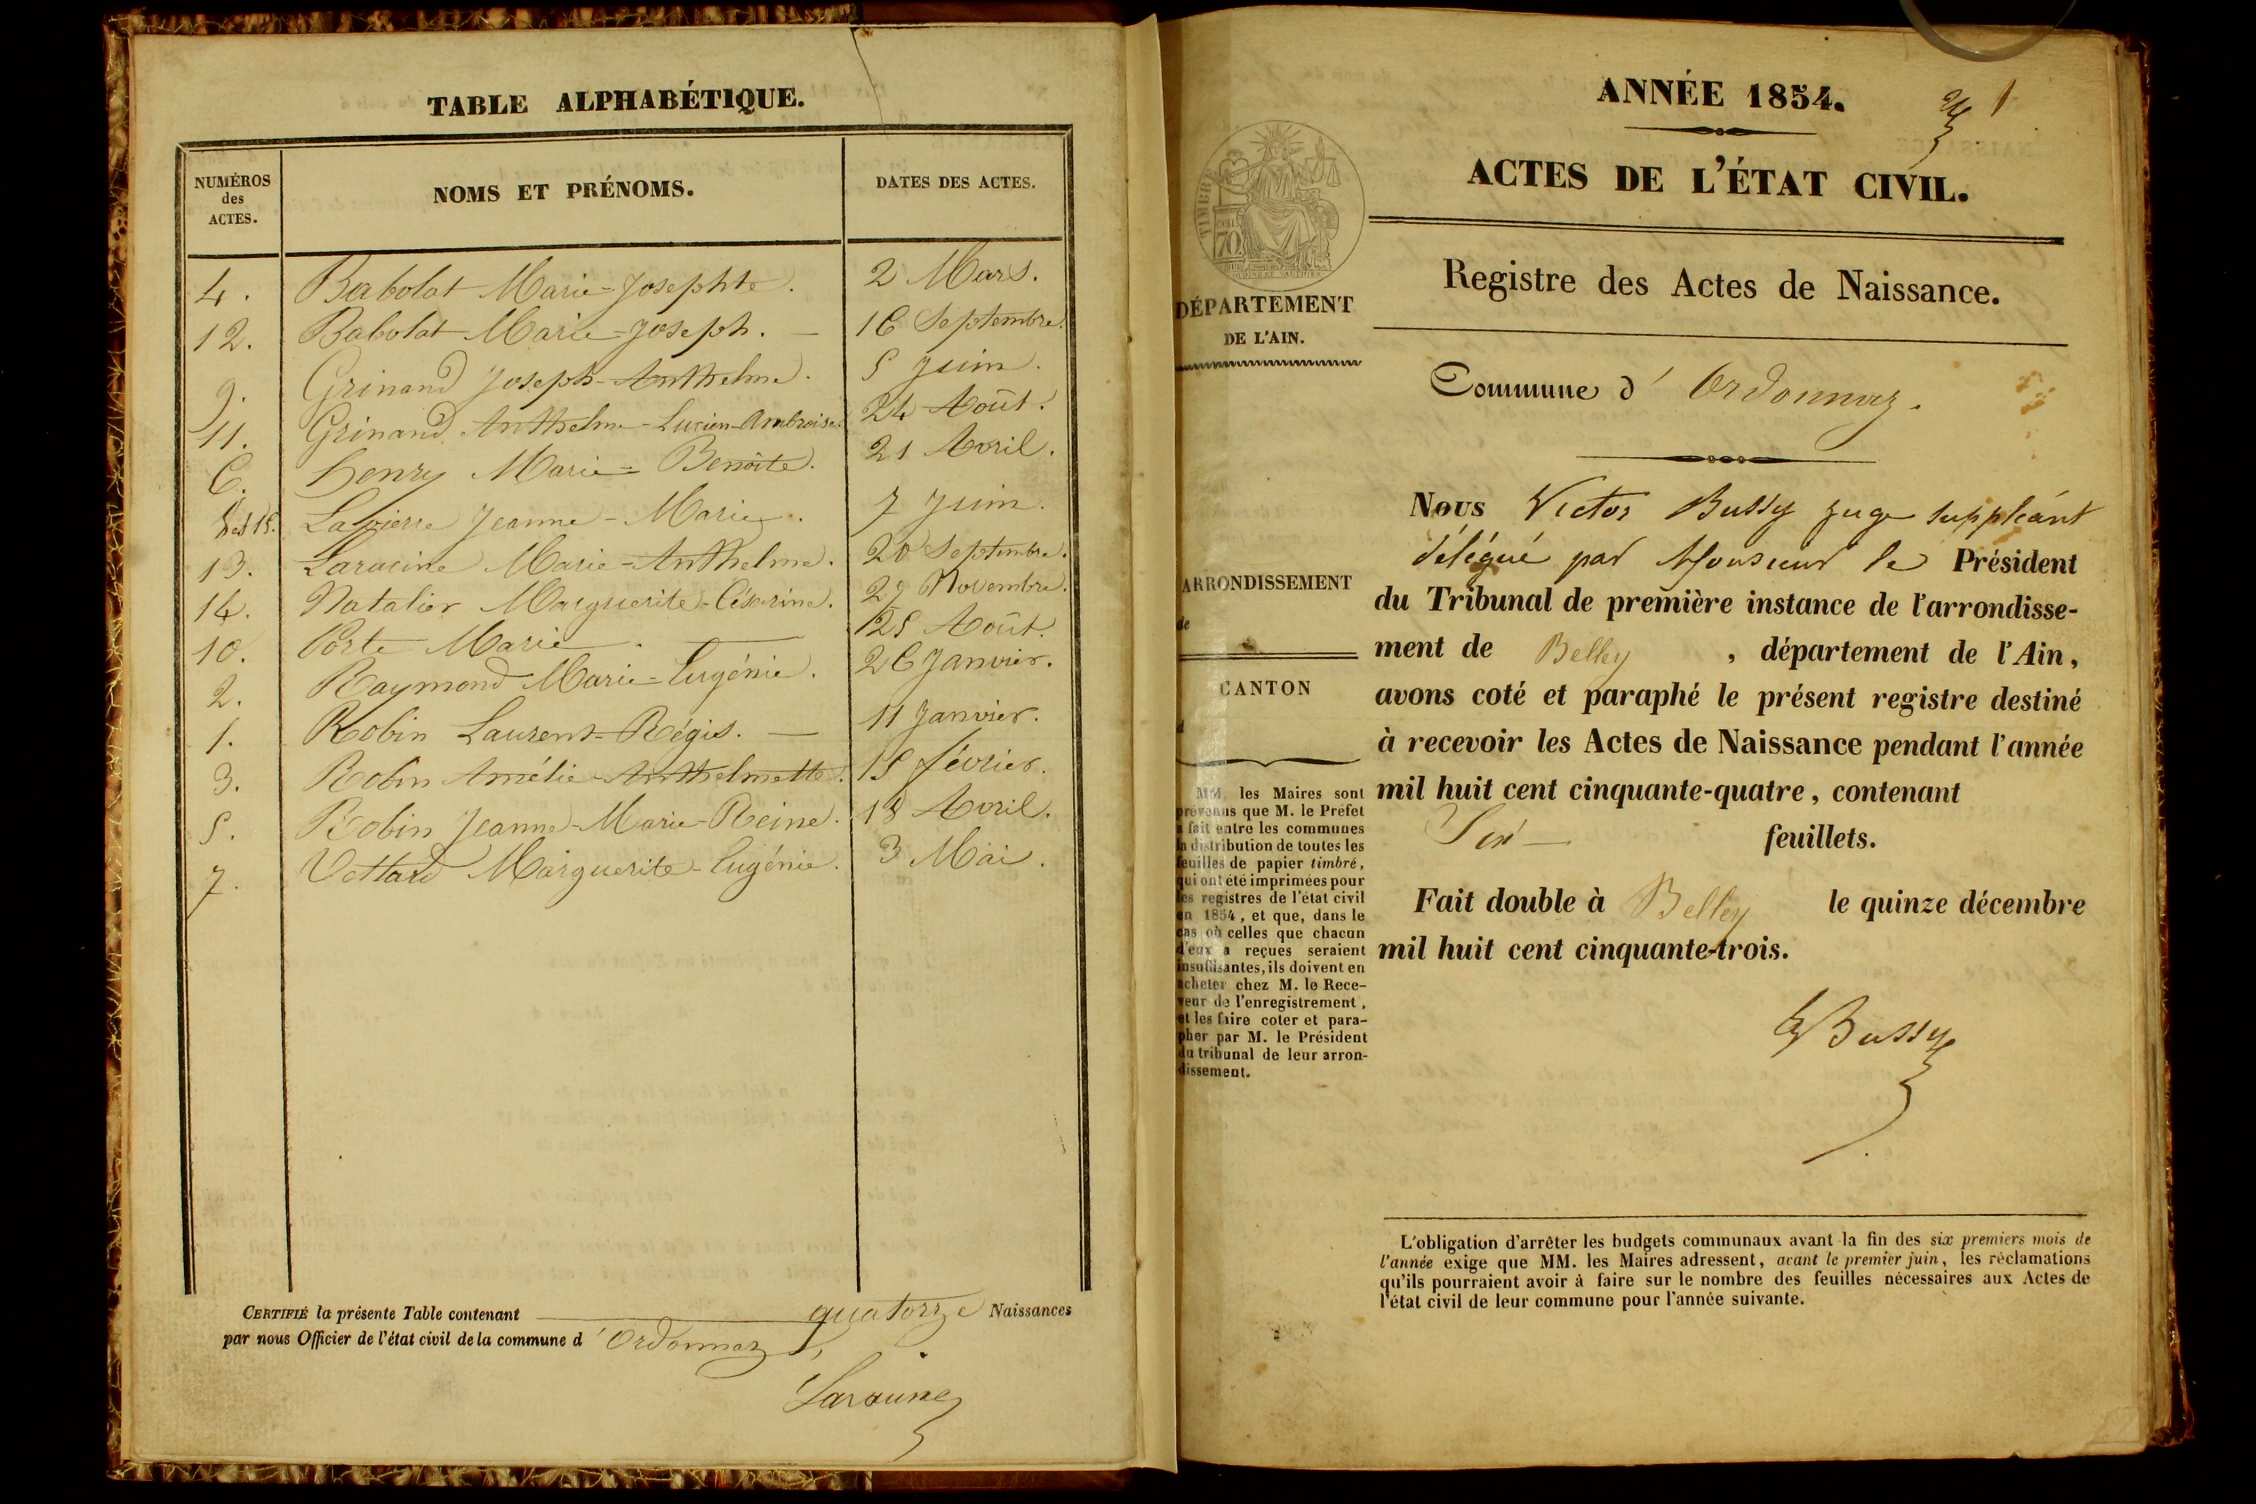 TABLE ALPHABÉTIQUE.
NUMÉROS des ACTES. NOMS ET PRÉNOMS. DATES DES ACTES.
4. Babolat Marie-Josephte. 2 Mars.
12. Babolat Marie-Joseph. — 16 Septembre.
9. Grinand Joseph-Anthelme. 5 Juin.
11. Grinand Anthelme-Lucien-Ambroise. 24 Août.
6. Henry Marie-Benoîte. 21 Avril.
8 et 15. Lapierre Jeanne-Marie. 7 Juin.
13. Laracine Marie-Anthelme. 20 Septembre.
14. Natalier Marguerite-Césarine. 29 Novembre.
10. Porte Marie. — 25 Août.
2. Raymond Marie-Eugénie. 26 Janvier.
1. Robin Laurent-Régis. — 11 Janvier.
3. Robin Amélie-Anthelmette. 15 février.
5. Robin Jeanne-Marie-Reine. 18 Avril.
7. Vettard Marguerite-Eugénie. 3 Mai.
CERTIFIÉ la présente Table contenant quatorze Naissances
par nous Officier de l'état civil de la commune d'Ordonnaz,
Laracine
ANNÉE 1854.
1
ACTES DE L'ÉTAT CIVIL.
TIMBRE
70
DÉPARTEMENT
DE L'AIN.
Registre des Actes de Naissance.
Commune d'Ordonnaz.
ARRONDISSEMENT
de
CANTON
d
MM. les Maires sont
prévenus que M. le Préfet
a fait entre les communes
la distribution de toutes les
feuilles de papier timbré,
qui ont été imprimées pour
les registres de l'état civil
en 1854, et que, dans le
cas où celles que chacun
d'eux a reçues seraient
insuffisantes, ils doivent en
acheter chez M. le Rece-
veur de l'enregistrement,
et les faire coter et para-
pher par M. le Président
du tribunal de leur arron-
dissement.
Nous Victor Bussy juge suppléant
délégué par Monsieur le Président
du Tribunal de première instance de l'arrondisse-
ment de Belley, département de l'Ain,
avons coté et paraphé le présent registre destiné
à recevoir les Actes de Naissance pendant l'année
mil huit cent cinquante-quatre, contenant
Six — feuillets.
Fait double à Belley le quinze décembre
mil huit cent cinquante-trois.
Bussy
L'obligation d'arrêter les budgets communaux avant la fin des six premiers mois de
l'année exige que MM. les Maires adressent, avant le premier juin, les réclamations
qu'ils pourraient avoir à faire sur le nombre des feuilles nécessaires aux Actes de
l'état civil de leur commune pour l'année suivante.